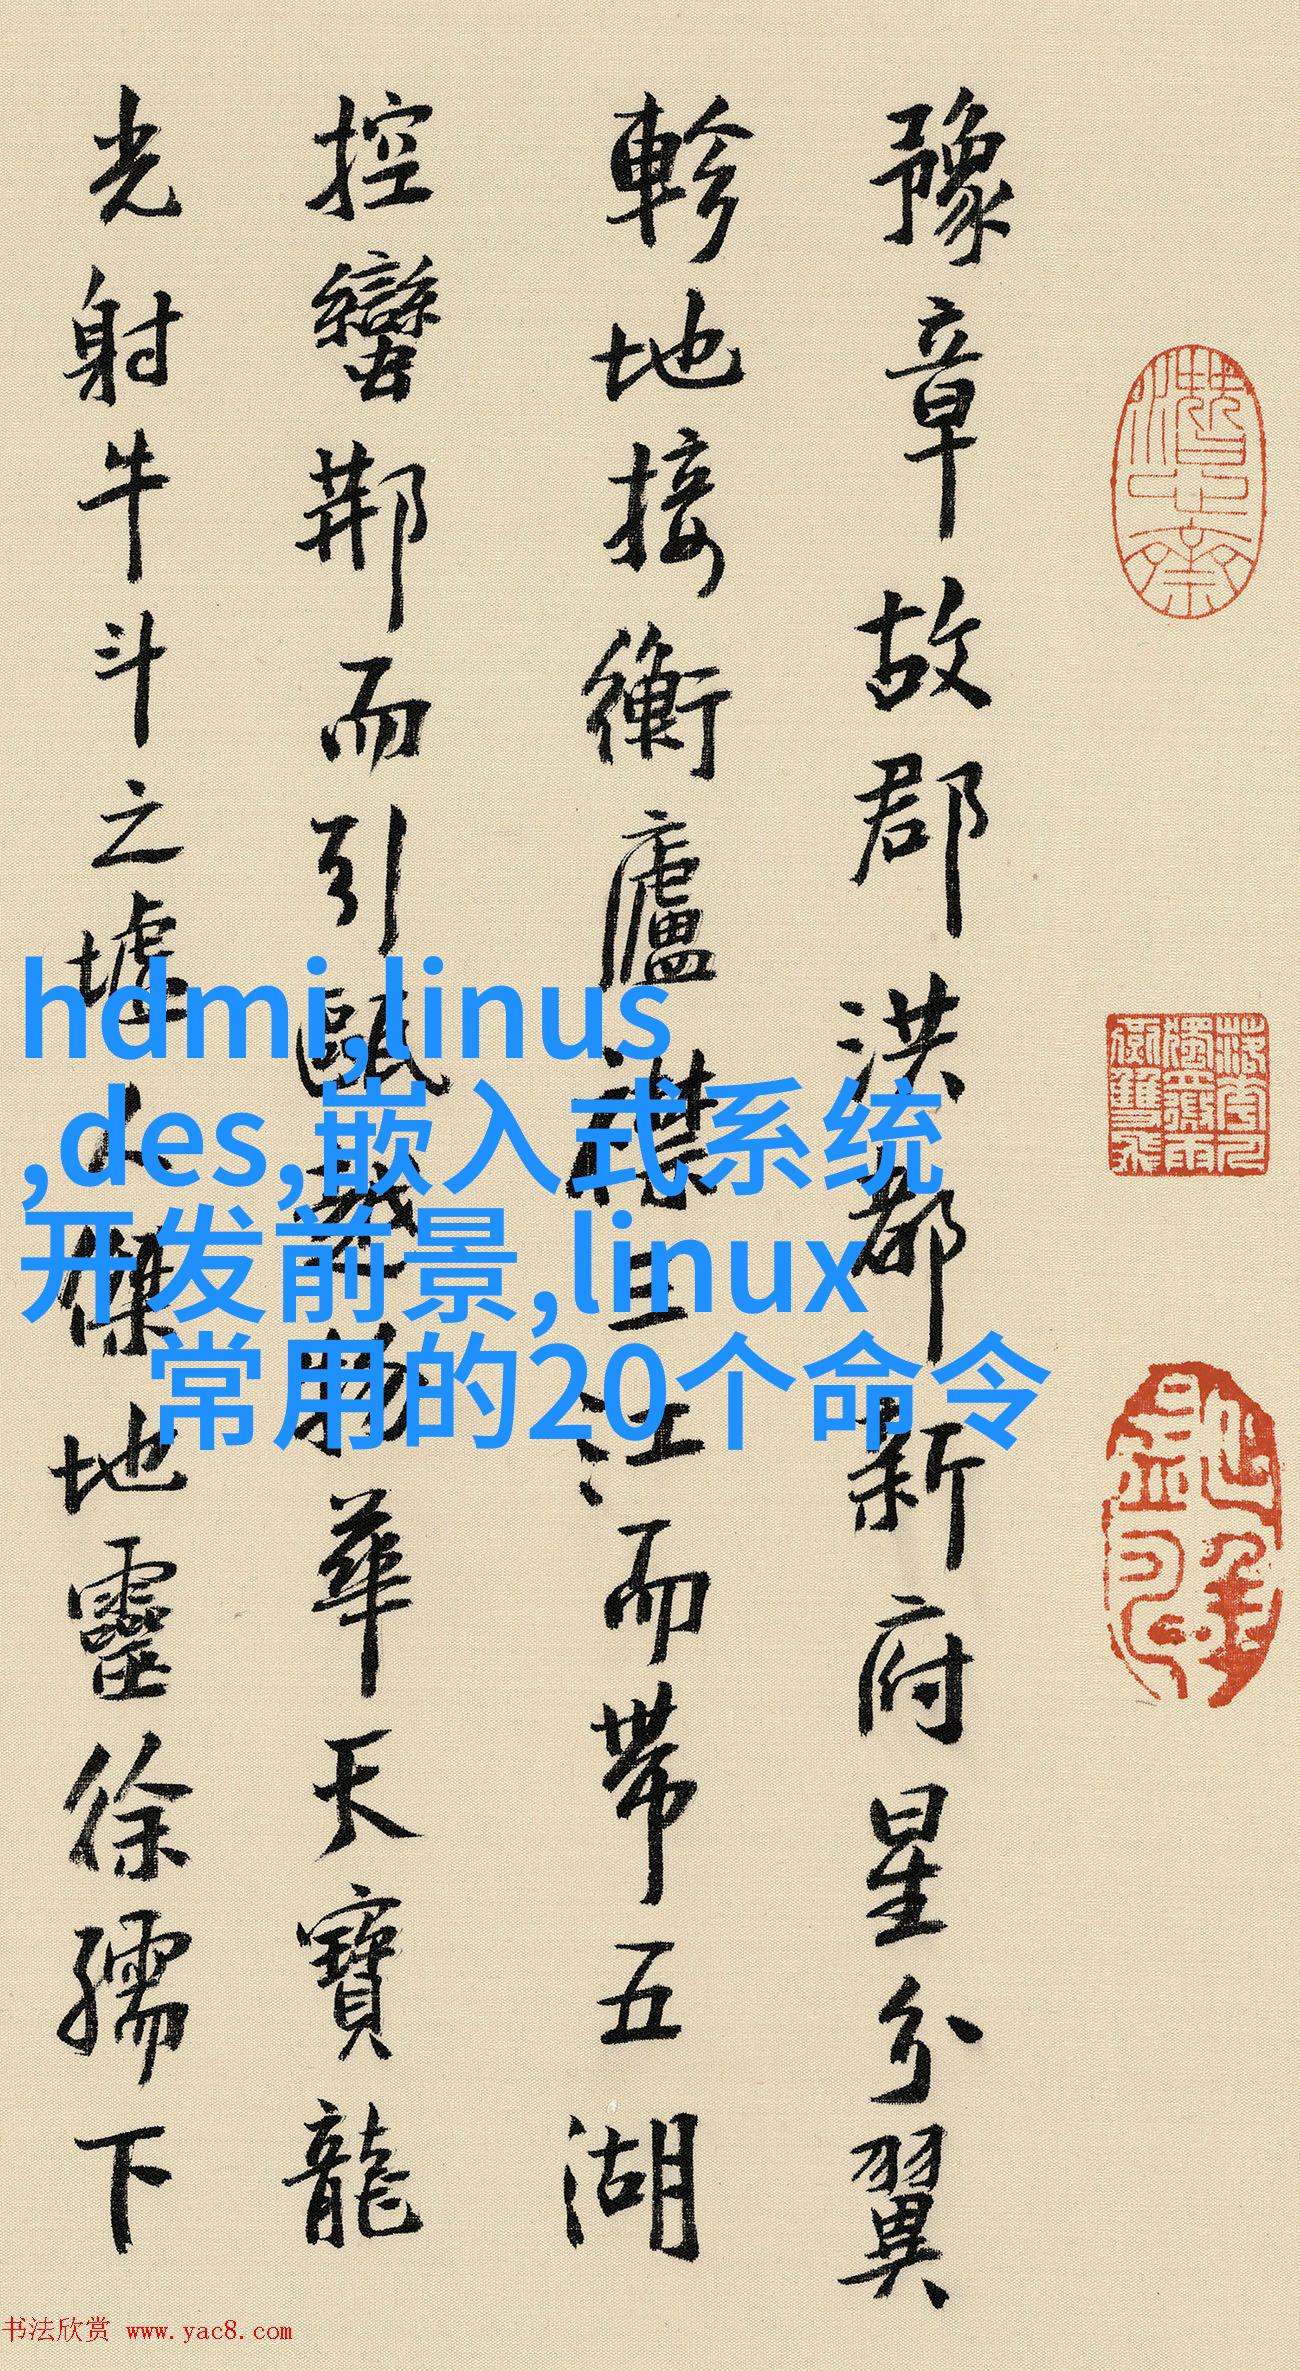 豫章故郡洪都新府星分翼
軫地接衡廬襟三江而帶五湖
控蠻荆而引甌越物華天寶龍
光射牛斗之墟人傑地靈徐孺下
hdmi,linus
,des,嵌入式系统
开发前景,linux
常用的20个命令
书法欣赏 www.yac8.com